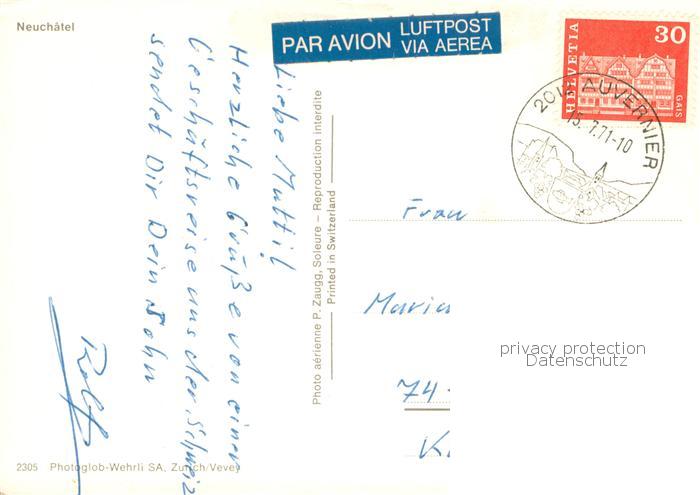 Neuchâtel
PAR AVION LUFTPOST
VIA AEREA
HELVETIA
30
GAIS
2012 AUVERNIER
15.7.71-10
Liebe Mutti!
Herzliche Grüße von einer
Geschäftsreise aus der Schweiz
sendet Dir Dein Sohn
Rolf
Photo aérienne P. Zaugg, Soleure – Reproduction interdite
Printed in Switzerland
Frau
Maria
74
K.
privacy protection
Datenschutz
2305 Photoglob-Wehrli SA, Zurich/Vevey